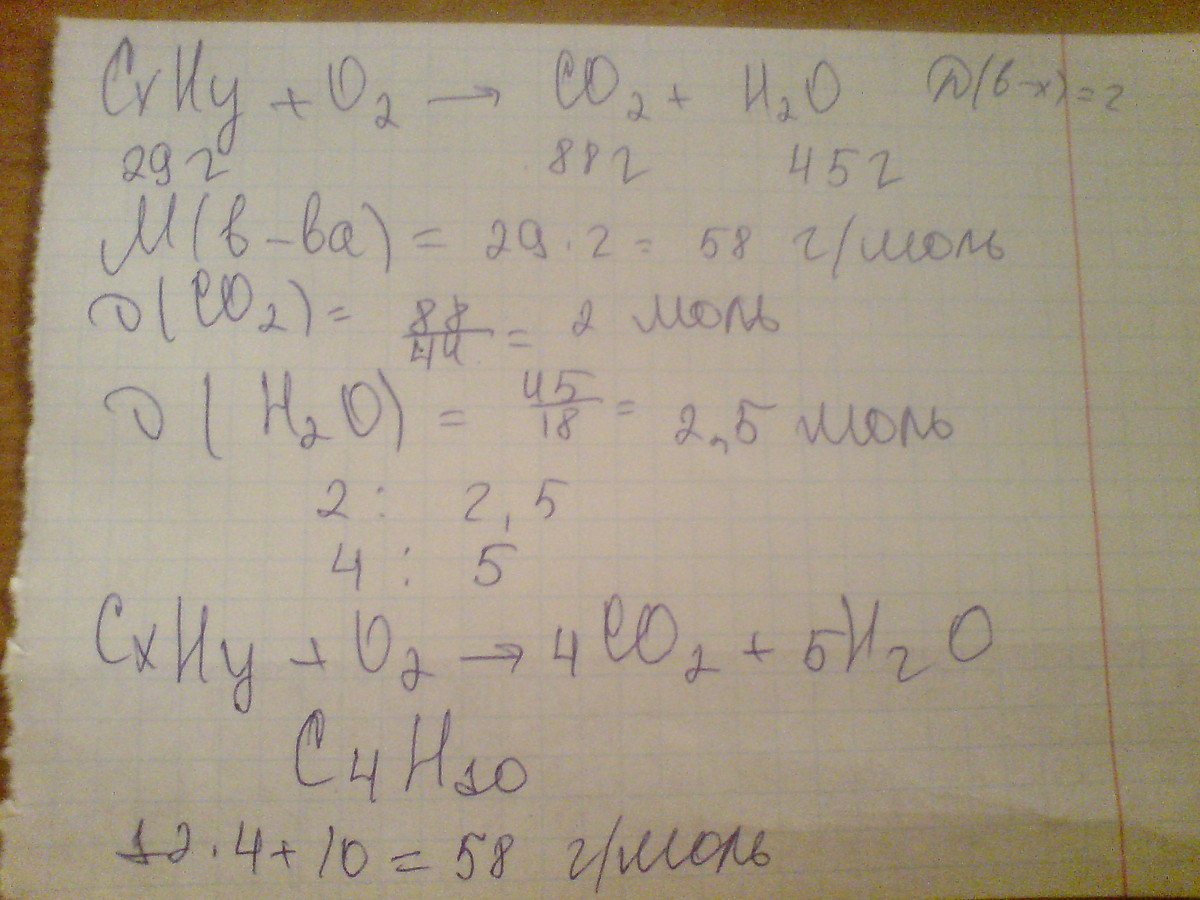 CxHy + O2 → CO2 + H2O D(в-х)=2
29г 88г 45г
M(в-ва) = 29·2 = 58 г/моль
ν(CO2) = 88/44 = 2 моль
ν(H2O) = 45/18 = 2,5 моль
2 : 2,5
4 : 5
CxHy + O2 → 4CO2 + 5H2O
C4H10
12·4+10 = 58 г/моль